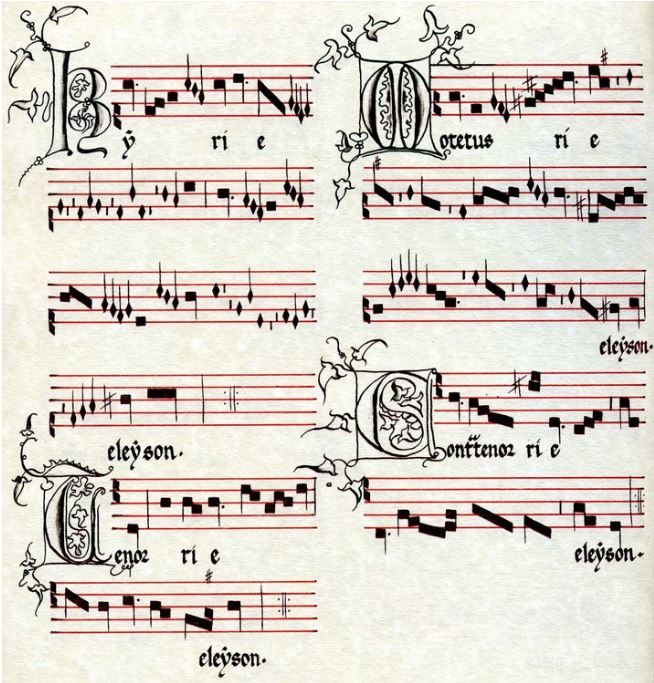 Kÿ ri e
eleÿson.
Tenor ri e
eleÿson.
Motetus ri e
eleÿson.
Conttenor ri e
eleÿson.